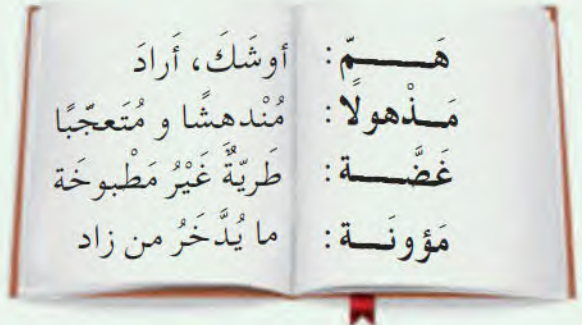 هَـــمّ : أوشَكَ، أَرادَ
مَـــذْهولًا : مُنْدهشًا و مُتَعجّبًا
غَضَّـــة : طَريّةٌ غَيْرُ مَطْبوخَة
مَؤونَـــة : ما يُدَّخَرُ من زاد